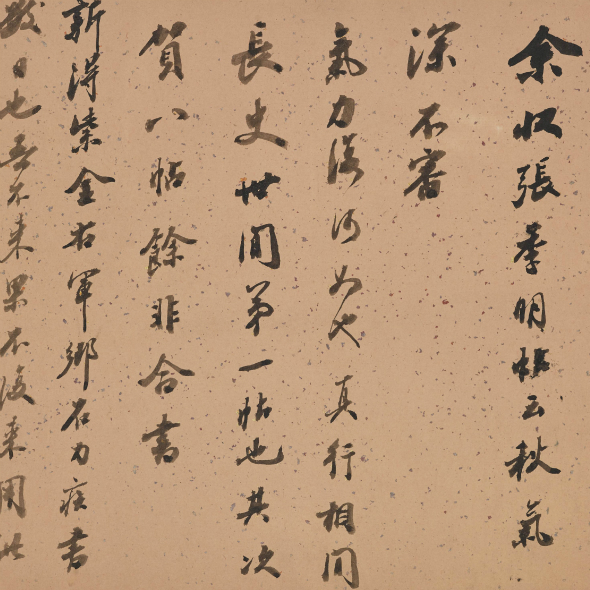 余收張季明帖云秋氣
深不審
氣力復何如也真行相間
長史世間第一帖也其次
賀八帖餘非合書
新得紫金右軍鄉石力疾書
數日也吾不來果不復來用此